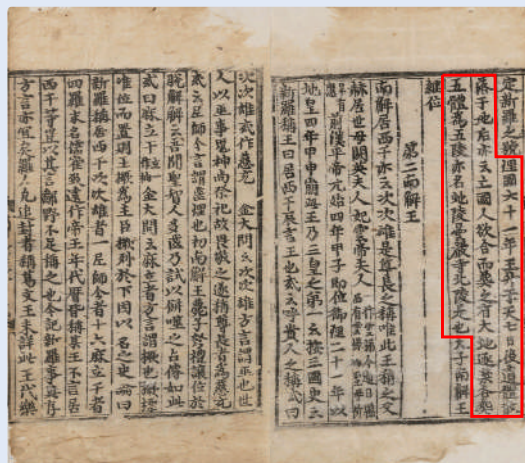 定新羅之號理國六十一年王升于天七日後遺體散
落于地后亦云亡國人欲合而葬之有大蛇逐禁各葬
五體爲五陵亦名蛇陵曇嚴寺北陵是也太子南解王
継位
第二南解王
南解居西干亦云次次雄是尊長之稱唯此王稱之父
赫居世母閼英夫人妃雲帝夫人一作雲梯今迎日縣西有雲梯山聖母祈
旱有應前漢平帝元始四年甲子即位御理二十一年以
地皇四年甲申崩此王乃三皇之第一云按三國史云
新羅稱王曰居西干辰言王也或云呼貴人之稱或曰
次次雄或作慈充 金大問云次次雄方言謂巫也世
人以巫事鬼神尚祭祀故畏敬之遂稱尊長者爲慈充
或云尼師今言謂齒理也初南解王薨子弩禮讓位於
脫解解云吾聞聖智人多齒乃試以餅噬之古傳如此
或曰麻立干 金大問云麻立者方言謂橛也橛標
准位而置則王橛爲主臣橛列於下因以名之史論曰
新羅稱居西干次次雄者一尼師今者十六麻立干者
四羅末名儒崔致遠作帝王年代曆皆稱某王不言居
西干等豈以其言鄙野不足稱之也今記新羅事具存
方言亦宜矣羅人凡追封者稱葛文王未詳此王代樂